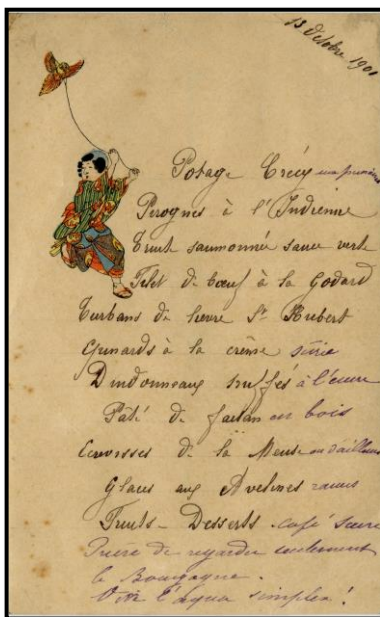 13 Octobre 1900
Potage Crécy aux primeurs
à l'Indienne
Truite saumonnée sauce verte
Filet de bœuf à la Godard
Turbans de lievre St Hubert
à la crême
Dindonneaux truffés à l'encre
Pâté de faisan en bois
Ecrevisses de la Meuse ou d'ailleurs
Glaces aux Avelines rances
Fruits - Desserts café sucre
Prière de regarder seulement
le Bourgogne.
l'aqua simplex!